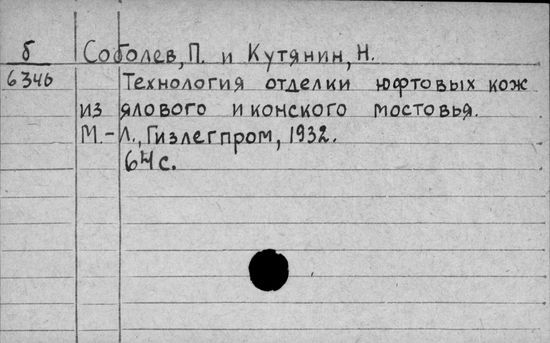 б Соболев, П. и Кутянин, Н.
6346 Технология отделки юфтовых кож
из ялового и конского мостовья.
М.-Л., Гизлегпром, 1932.
64 с.